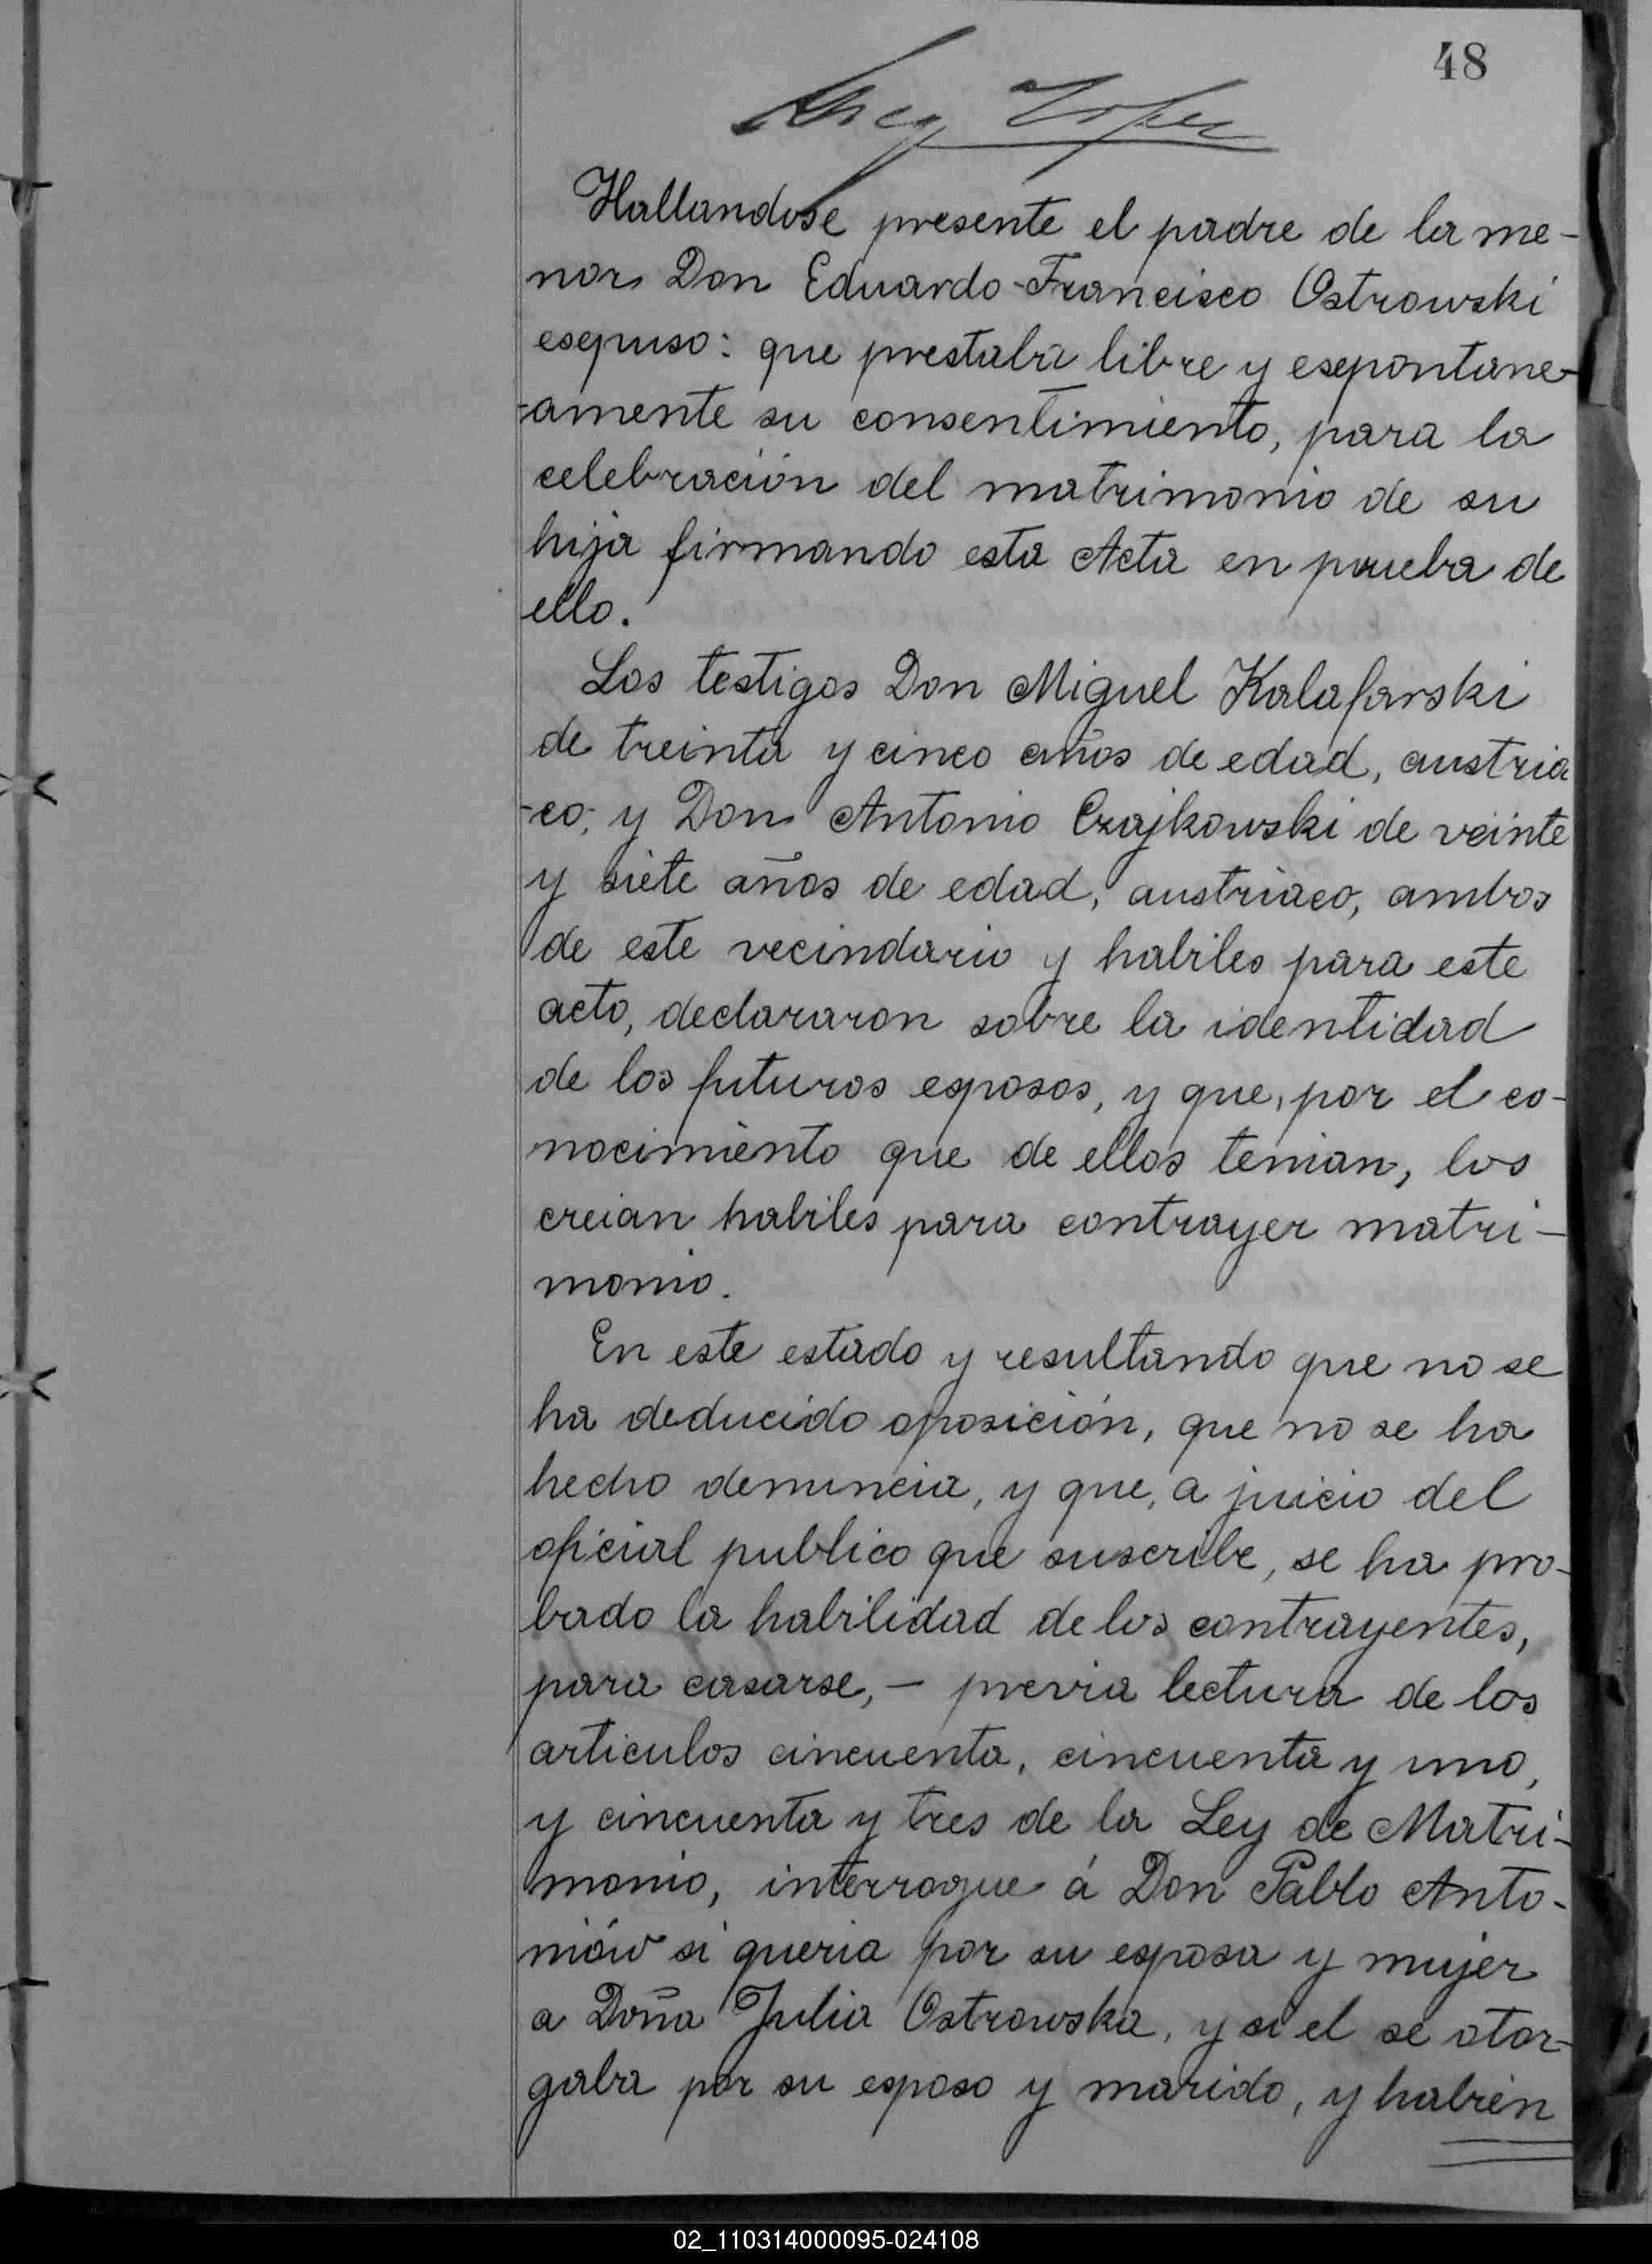 48
Hallandose presente el padre de la me-
nor Don Eduardo-Francisco Ostrowski
esepuso: que prestaba libre y esepontane-
-amente su consentimiento, para la
celebración del matrimonio de su
hija firmando esta Acta en prueba de
ello.
Los testigos Don Miguel Kalafarski
de treinta y cinco años de edad, austria
-co; y Don Antonio Czajkowski de veinte
y siete años de edad, austriaco, ambos
de este vecindario y habiles para este
acto, declararon sobre la identidad
de los futuros esposos, y que, por el co-
nocimiento que de ellos tenian, los
creian habiles para contrayer matri-
monio.
En este estado y resultando que no se
ha deducido oposición, que no se ha
hecho denuncia, y que, a juicio del
oficial publico que suscribe, se ha pro-
bado la habilidad de los contrayentes,
para casarse, - previa lectura de los
articulos cincuenta, cincuenta y uno,
y cincuenta y tres de la Ley de Matri-
monio, interrogue á Don Pablo Anto-
niów si queria por su esposa y mujer
a Doña Julia Ostrowska, y si el se otor-
gaba por su esposo y marido, y habién
02_110314000095-024108